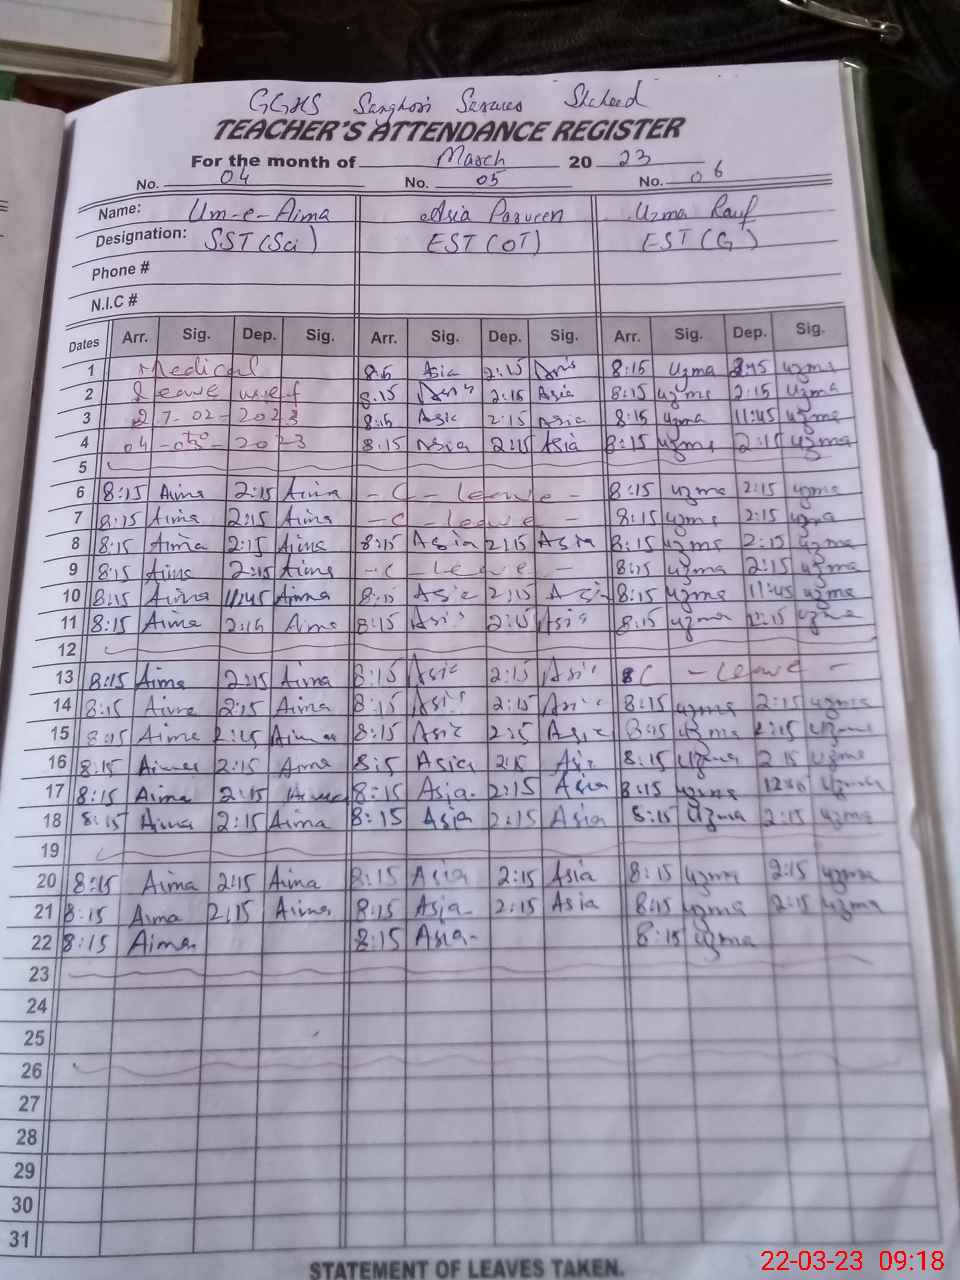 GGHS Sanghori Sarwar Shaheed
TEACHER'S ATTENDANCE REGISTER
For the month of March 20 23
No. 04 No. 05 No. 06
Name: Um-e-Aima Asia Parveen Uzma Rauf
Designation: SST(Sci) EST(OT) EST(G)
Phone #
N.I.C #
Dates Arr. Sig. Dep. Sig. Arr. Sig. Dep. Sig. Arr. Sig. Dep. Sig.
1 Medical Asia 2:15 8:15 Uzma uzma
2 Leave w.e.f 8:15 2:15 Asia 8:15 uzma 2:15 Uzma
3 27-02-2023 8:15 Asia 2:15 Asia 8:15 uzma 11:45 uzma
4 to 04-03-2023 8:15 Asia 2:15 Asia 8:15 uzma 2:15 uzma
5
6 8:15 Aima 2:15 Aima - C - leave - 8:15 uzma 2:15 uzma
7 8:15 Aima 2:15 Aima - C - leave - 8:15 uzma 2:15 uzma
8 8:15 Aima 2:15 Aima 8:15 Asia 2:15 Asia 8:15 uzma 2:15 uzma
9 8:15 Aima 2:15 Aima - C - leave - 8:15 uzma 2:15 uzma
10 8:15 Aima 11:45 Aimma 8:15 Asia 2:15 Asia 8:15 uzma 11:45 uzma
11 8:15 Aima 2:15 Aima 8:15 Asia 2:15 Asia 8:15 uzma 2:15 uzma
12
13 8:15 Aima 2:15 Aima 8:15 Asia 2:15 Asia C - leave -
14 8:15 Aima 2:15 Aima 8:15 Asia 2:15 Asia 8:15 uzma 2:15 uzma
15 8:15 Aima 2:15 Aima 8:15 Asia 2:15 Asia 8:15 uzma 2:15 uzma
16 8:15 Aima 2:15 Aima 8:15 Asia 2:15 Asia 8:15 uzma 2:15 uzma
17 8:15 Aima 2:15 Aima 8:15 Asia 2:15 Asia 8:15 uzma uzma
18 8:15 Aima 2:15 Aima 8:15 Asia 2:15 Asia 8:15 Uzma 2:15 uzma
19
20 8:15 Aima 2:15 Aima 8:15 Asia 2:15 Asia 8:15 uzma 2:15 uzma
21 8:15 Aima 2:15 Aima 8:15 Asia 2:15 Asia 8:15 uzma 2:15 uzma
22 8:15 Aima 8:15 Asia 8:15 uzma
23
24
25
26
27
28
29
30
31
STATEMENT OF LEAVES TAKEN.
22-03-23 09:18